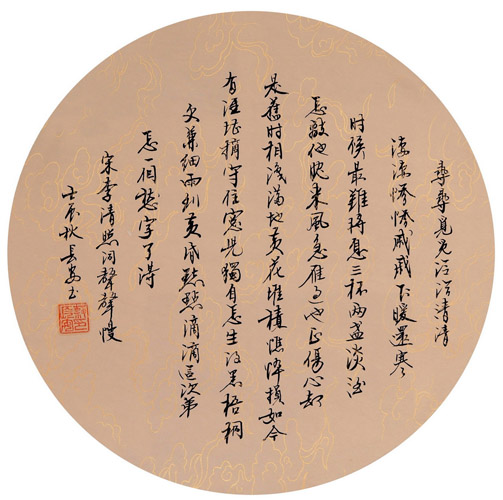 尋尋覓覓冷冷清清
凄凄慘慘戚戚乍暖還寒
时候最難將息三杯兩盞淡酒
怎敵他晚来風急雁過也正傷心却
是舊时相識滿地黄花堆積憔悴損如今
有誰堪摘守住窓児獨自怎生得黑梧桐
更兼細雨到黄昏點點滴滴這次第
怎一個愁字了得
宋李清照词聲聲慢
壬辰秋長安书